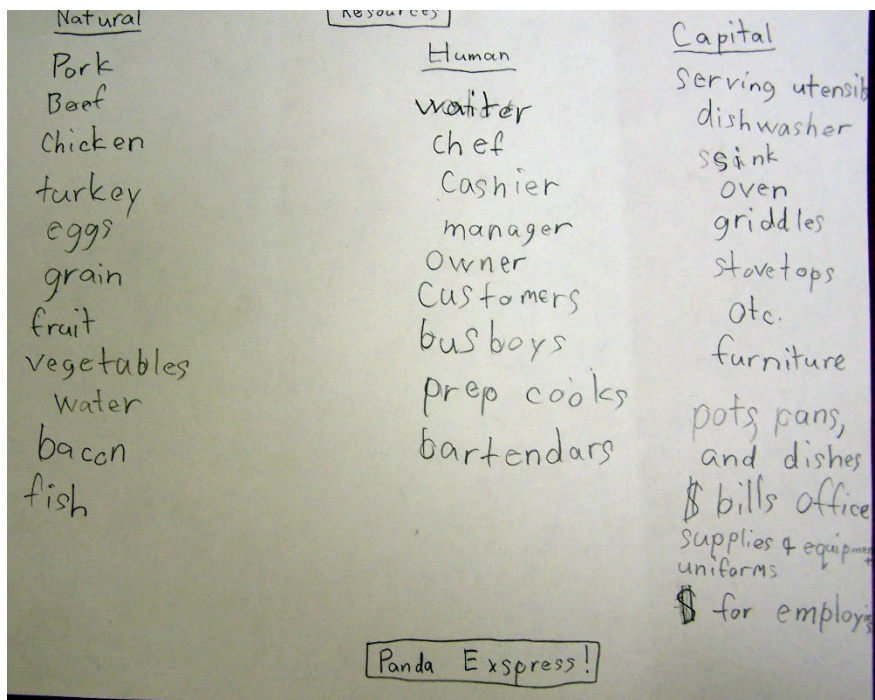 Resources
Natural
Pork
Beef
Chicken
turkey
eggs
grain
fruit
vegetables
water
bacon
fish
Human
waiter
chef
Cashier
manager
owner
Customers
busboys
prep cooks
bartendars
Capital
serving utensils
dishwasher
ssink
oven
griddles
stovetops
otc.
furniture
pots, pans,
and dishes
$ bills office
supplies & equipment
uniforms
$ for
Panda Exspress!